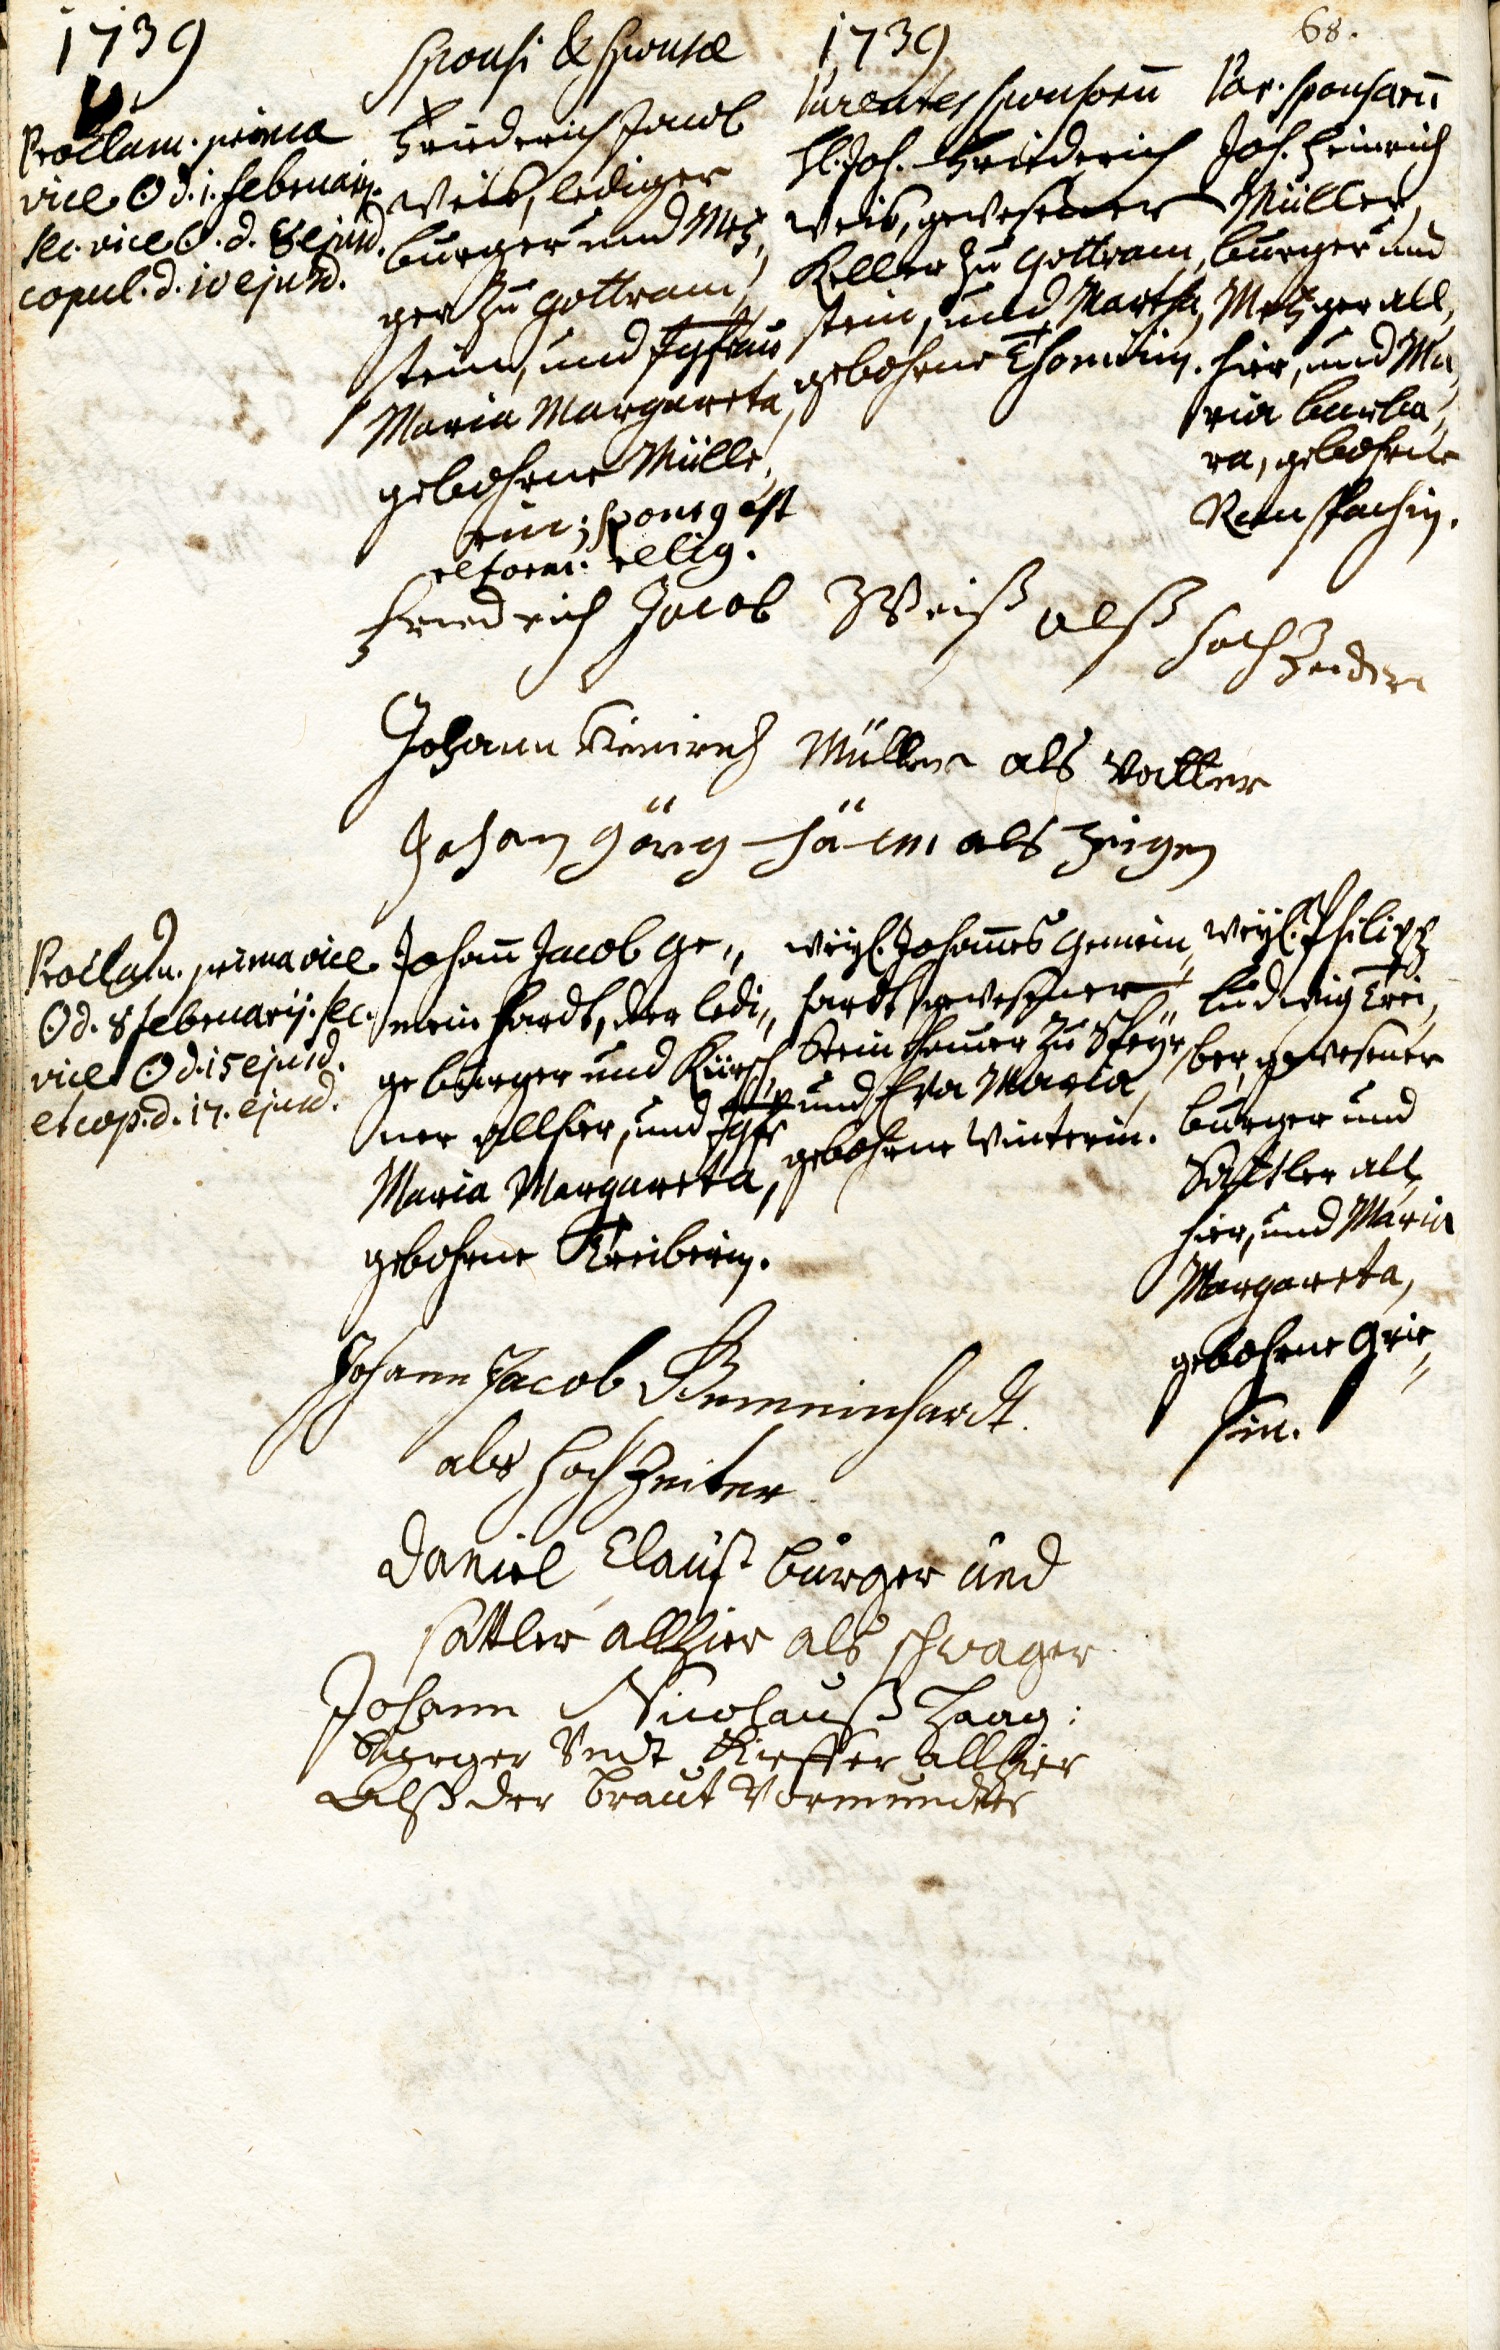 1739
Sponsi & Sponsæ
1739
68.
Parentes Sponsorū
Par. Sponsarū
Proclam. prima
vice ⊙ d. 1. februarij.
sec. vice ⊙. d. 8 ejusd.
copul. d. 10 ejusd.
Friederich Jacob
Weis, lediger
burger und Metz„
ger zu Gottram„
stein, und Jgfrau
Maria Margareta,
gebohrne Mülle„
rin; Sponsg est
reform. relig.
Hl. Joh. Friederich
Weis, gewesener
Keller zu Gottram„
stein, und Martha,
gebohrne Thomäin.
Joh. Heinrich
Müller,
burger und
Metzger all„
hier, und Ma„
ria barba„
ra, gebohrne
Ramspachin.
Friedrich Jacob Weiß alß Hochzeider
Johann Heinrich Müller als Vatter
Johan Görg als zeigen
Proclam. prima vice
⊙ d. 8 februarij. sec.
vice ⊙ d. 15 ejusd.
et cop. d. 17. ejusd.
Johañ Jacob Ge„
meinhardt, der ledi„
ge burger und Kürsch„
ner allhier, und Jgfr
Maria Margareta,
gebohrne Treiberin.
weyl. Johañes Gemein„
hardt gewesener
Steinhauer zu Speyer
und Eva Maria,
gebohrne Winterin.
weyl. Philipp
Ludwig Trei„
ber, gewesener
burger und
Sattler all„
hier, und Maria
Margareta,
gebohrne Grie„
sin.
Johann Jacob Gemeinhardt.
als Hochzeiter
Daniel Clauß burger und
sattler allhier als schwager
Johann Nicolauß Haag:
burger Undt Kieffer allhier
Alß der braut Vormunder